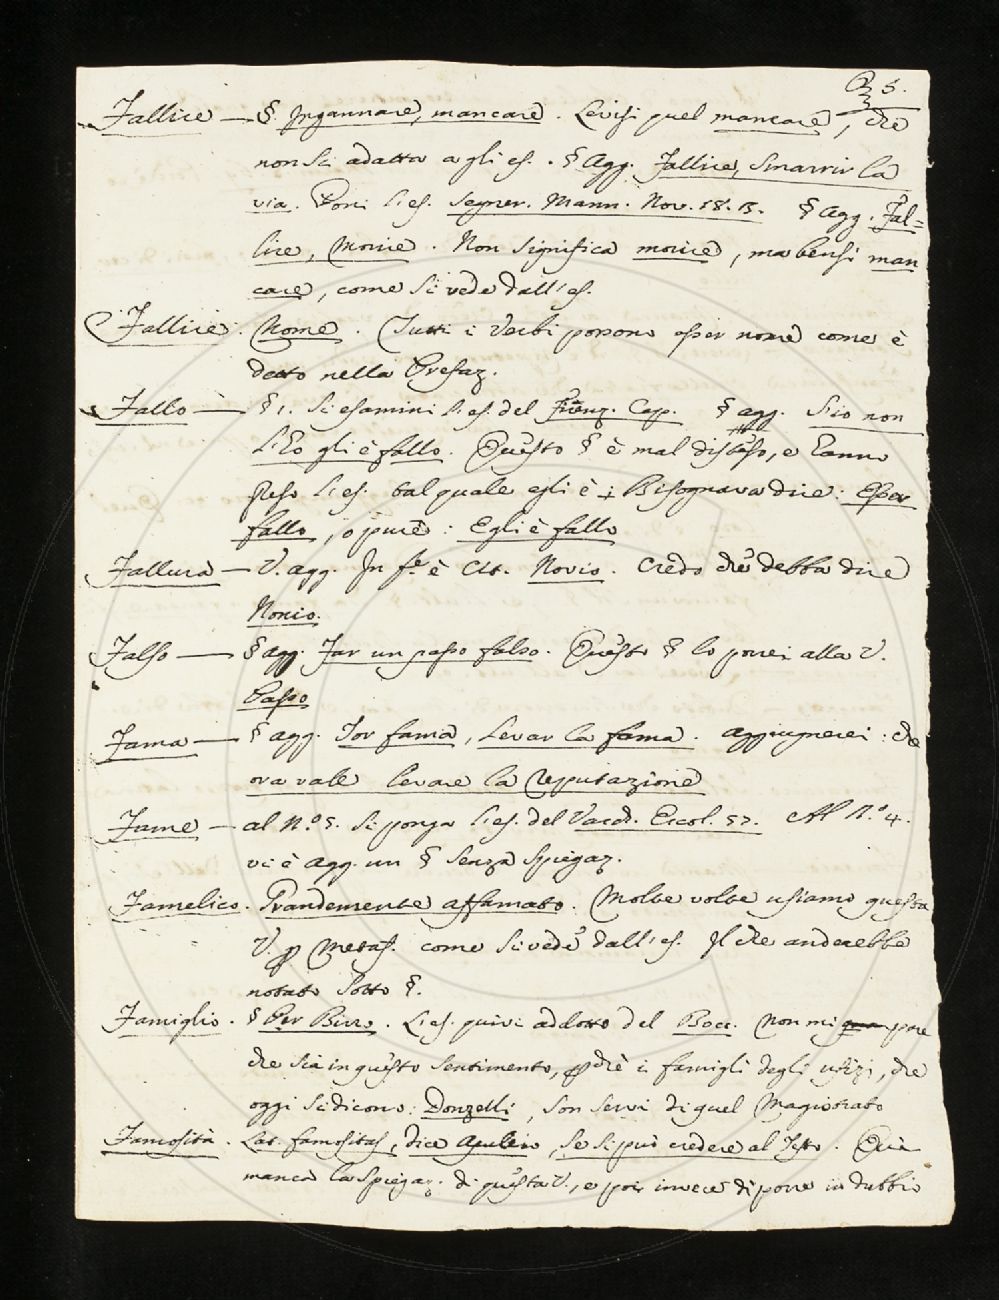 5.
Fallire — §. Ingannare, mancare. Levisi quel mancare, che
non si adatta agli es. § Agg. Fallire, Smarrir la
via. Poni l'es. Segner. Mann. Nov. 18. 13. § Agg. Fal=
lire, Morire. Non significa morire, ma bensì man
care, come si vede dall'es.
Fallire. Nome. Tutti i Verbi possono esser nome come è
detto nella Prefaz.
Fallo — § 1. Si esamini l'es. del Firenz. Cap. § agg. S'io non
l'ho gli è fallo. Questo § è mal disteso, e l'anno
steso l'es. tal quale egli è; Bisognava dire: Esser
fallo, oppure: Egli è fallo
Fallura — V. agg. In f.e è Cit. Novio. Credo che debba dire
Nonio.
Falso — § agg. Far un passo falso. Questo § lo porrei alla V.
Passo
Fama — § agg. Tor fama, Levar la fama. Aggiugnerei: che
ora vale levare la reputazione
Fame — al N.º 5. si ponga l'es. del Varch. Ercol. 57. Al N.º 4.
vi è agg. un § senza spiegaz.
Famelico. Grandemente affamato. Molte volte usiamo questa
V. p Metaf. come si vede dall'es. Il che anderebbe
notato sotto §.
Famiglio. § Per Birro. L'es. quivi addotto del Bocc. Non mi pare
che sia in questo sentimento, pchè i famigli degli ufizi, che
oggi si dicono: Donzelli, son servi di quel Magistrato
Famosità. Lat. famositas, dice Apuleio, se si può credere al Testo. Qui
manca la spiegaz. di questa V., e poi invece di porre in dubbio